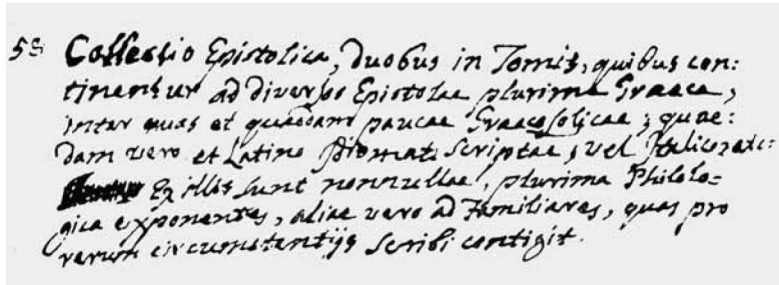 58 Collectio Epistolica, Duobus in Tomis, quibus con:
tinentur ad Diversos Epistolae plurimae Graece,
inter quas et quaedam paucae ; quae:
dam vero et Latino Idiomate Scriptae, vel
Ex illis sunt nonnullae, plurima Philolo=
gica exponentes, aliae vero ad Familiares, quas pro
rerum circumstantijs scribi contigit.